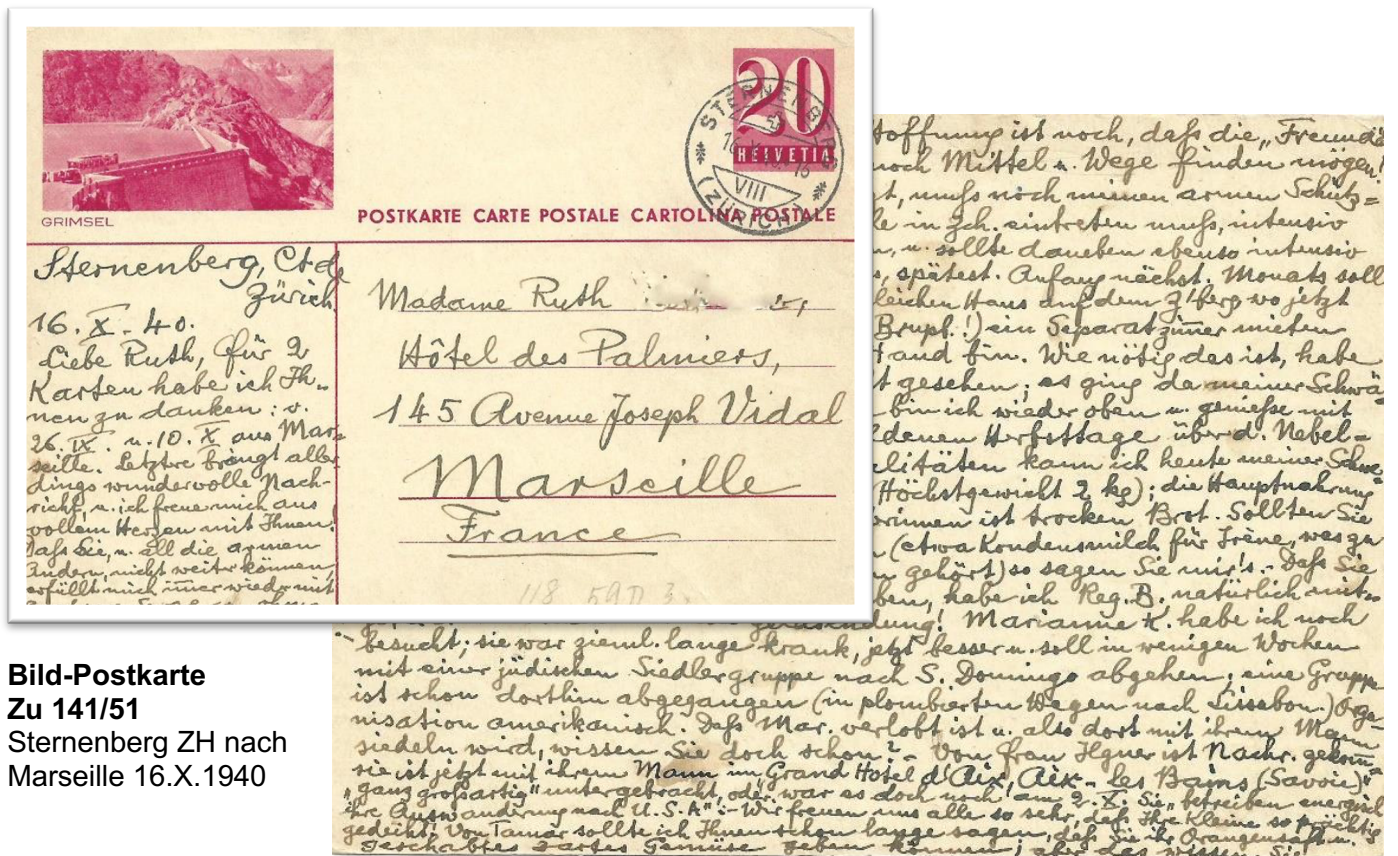 GRIMSEL
20
HELVETIA
STERNENBERG
VIII
(ZÜRICH)
POSTKARTE CARTE POSTALE CARTOLINA POSTALE
Sternenberg, Ct. de
Zürich
16. X. 40.
Liebe Ruth, Für 2
Karten habe ich Ih-
nen zu danken: v.
26. IX. u. 10. X. aus Mar-
seille. Letztre bringt aller-
dings wundervolle Nach-
richt, u. ich freue mich aus
vollem Herzen mit Ihnen!
Dass Sie, u. all die armen
Andern, nicht weiter können,
erfüllt mich immer wieder mit
Madame Ruth
Hôtel des Palmiers,
145 Avenue Joseph Vidal
Marseille
France
118 59
Hoffnung ist noch, dass die „Freunde
noch Mittel u. Wege finden mögen!
t, muss noch meinen armen Schütz=
le in Zch. eintreten muss, intensiv
n, u. sollte daneben ebenso intensiv
s, spätest. Anfang nächst. Monats soll
leichen Haus auf dem Z'berg wo jetzt
Brupb.!) ein Separatzimmer mieten
tand bin. Wie nötig das ist, habe
t gesehen; es ging da meiner Schwä
bin ich wieder oben u. geniesse mit
ldenen Herbsttage über d. Nebel=
litäten kann ich heute meiner Schwe
(Höchstgewicht 2 kg); die Hauptnahrung
rinnen ist trocken Brot. Sollten Sie
n (etwa Kondensmilch für Irène, was ja
n gehört) so sagen Sie mir's. - Dass Sie
ben, habe ich Reg. B. natürlich mit=
Marianne K. habe ich noch
besucht; sie war zieml. lange krank, jetzt besser u. soll in wenigen Wochen
mit einer jüdischen Siedlergruppe nach S. Domingo abgehen; eine Gruppe
ist schon dorthin abgegangen (in plombierten Wagen nach Lissabon.) Orga-
nisation amerikanisch. Dass Mar. verlobt ist u. also dort mit ihrem Mann
siedeln wird, wissen Sie doch schon? - Von Frau Ilgner ist Nachr. gekom-
sie ist jetzt mit ihrem Mann im Grand Hotel d'Aix, Aix-les Bains (Savoie)
„ganz grossartig" untergebracht, oder war es doch noch am 2. X. Sie „betreiben energisch
ihre Auswanderung nach U.S.A". - Wir freuen uns alle so sehr, dass Ihre Kleine so prächtig
gedeiht. Von Tamar sollte ich Ihnen schon lange sagen, dass Sie ihr Orangensaft u.
geschabtes zartes Gemüse geben können; aber das wissen Sie
Bild-Postkarte
Zu 141/51
Sternenberg ZH nach
Marseille 16.X.1940